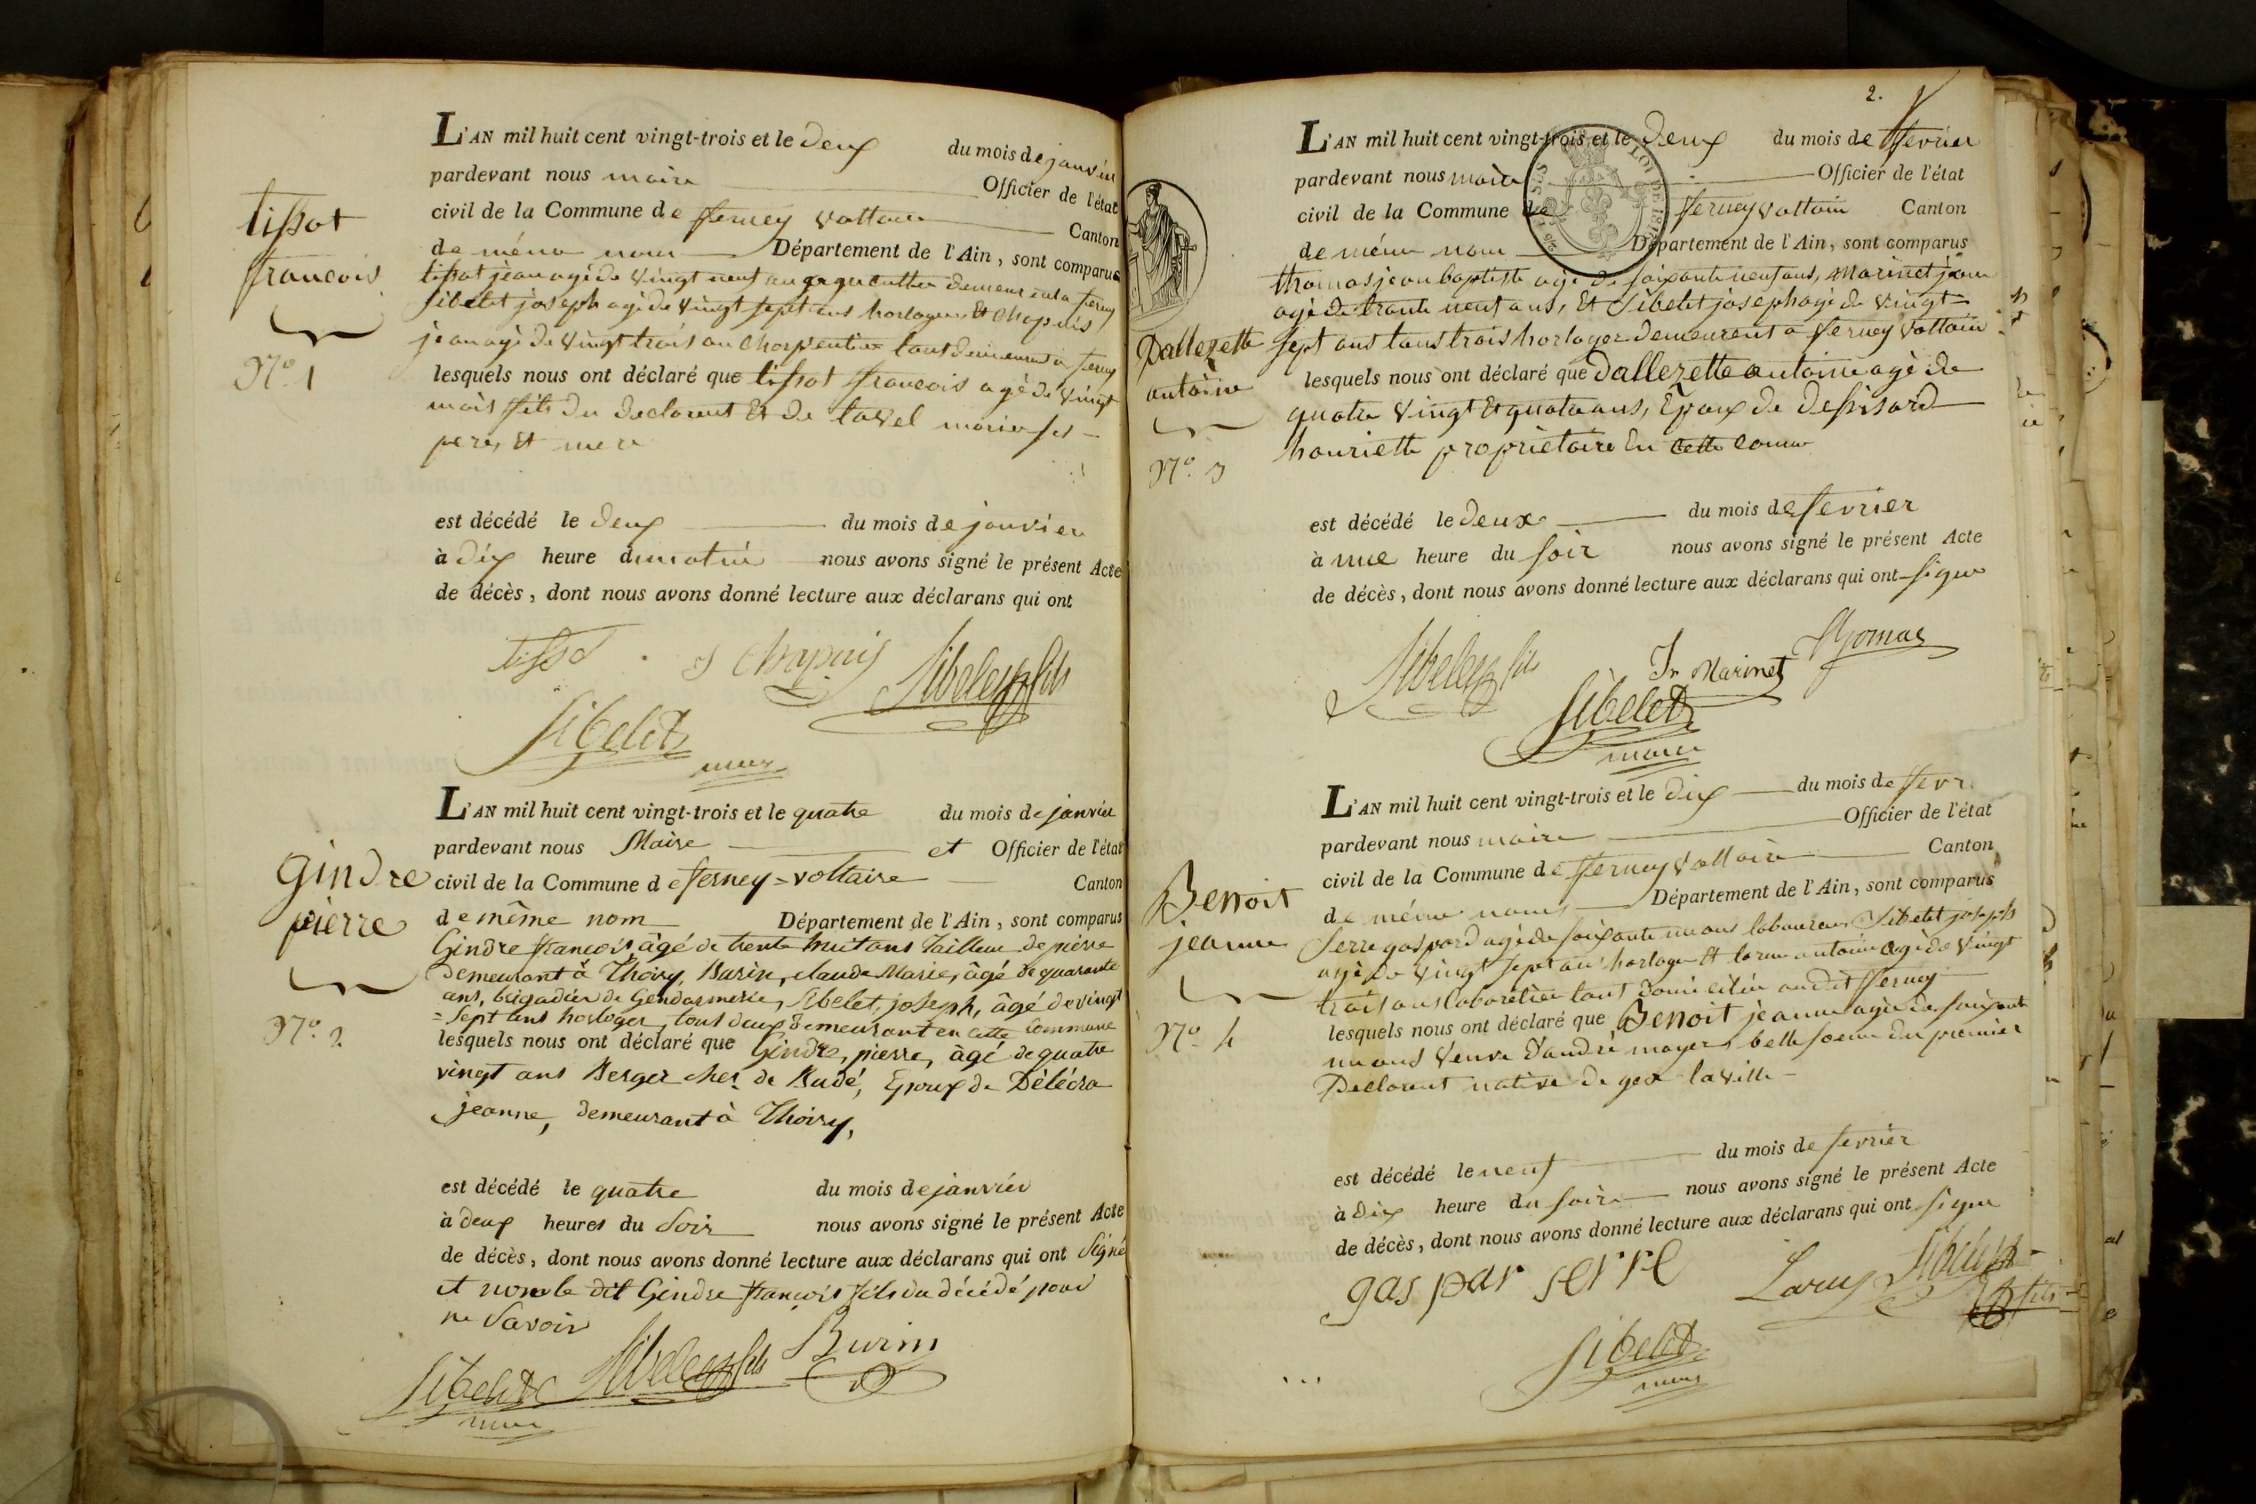 L'AN mil huit cent vingt-trois et le deux du mois de janvier
pardevant nous maire Officier de l'état
civil de la Commune de fferney voltaire Canton
de même nom Département de l'Ain, sont comparus
tissot jean agé de vingt neuf ans demeurent a ferney
sibelet joseph agé de vingt sept ans horloger, Et Chapuis
jean agé de vingt trois an Charpentier tout demeurent a ferney
lesquels nous ont déclaré que tissot francois agé de vingt
mois ffils du declarent Et de lavel marie ses
pere, Et mere
tissot
francois
N° 1
est décédé le deux du mois de janvier
à dix heure du matin nous avons signé le présent Acte
de décès, dont nous avons donné lecture aux déclarans qui ont
tissot J Chapuis Sibelet fils
Sibelet
maire
L'AN mil huit cent vingt-trois et le quatre du mois de janvier
pardevant nous Maire et Officier de l'état
civil de la Commune de fferney=voltaire Canton
de même nom Département de l'Ain, sont comparus
Gindre francois, âgé de trente huit ans Tailleur de pierre
demeurant à Thoiry, Burin, claude Marie, âgé de quarante
ans, brigadier de Gendarmerie, Sibelet, joseph, âgé de vingt
=sept ans horloger, tous deux demeurant en cette commune
lesquels nous ont déclaré que Gindre, pierre, âgé de quatre
vingt ans Berger chez de Budé, Epoux de Délédra
jeanne, demeurant à Thoiry,
Gindre
pierre
N° 2
est décédé le quatre du mois de janvier
à deux heures du Soir nous avons signé le présent Acte
de décès, dont nous avons donné lecture aux déclarans qui ont Signé
et non le dit Gindre françois fils du décédé pour
ne Savoir
Sibelet Sibelet fils Burin
maire
2.
L'AN mil huit cent vingt-trois et le deux du mois de ffevrier
pardevant nous maire Officier de l'état
civil de la Commune de fferney voltaire Canton
de même nom Département de l'Ain, sont comparus
thomas jean baptiste agé de soixante neuf ans, Marinet jean
agé de trante neuf ans, Et Sibelet joseph agé de vingt
sept ans tous trois horloger demeurent a ferney voltaire
lesquels nous ont déclaré que Dallezette antoine agé de
quatre vingt Et quatre ans, Epoux de
henriette proprietaire En cette comme
Dallezette
antoine
N° 3
est décédé le deux du mois de ffevrier
à une heure du soir nous avons signé le présent Acte
de décès, dont nous avons donné lecture aux déclarans qui ont signe
Sibelet fils Jn Marinet Thomas
Sibelet
maire
L'AN mil huit cent vingt-trois et le dix du mois de ffevr
pardevant nous maire Officier de l'état
civil de la Commune de fferney voltaire Canton
de même nom Département de l'Ain, sont comparus
Serre gaspard agé de soixante un ans laboureur Sibelet joseph
agé de vingt sept ans horloger Et antoine agé de vingt
trois ans tout domicilier au dit fferney
lesquels nous ont déclaré que Benoit jeanne agée de soixante
un ans veuve d'andré mayer, belle soeur du premier
Declarent native de gex la ville
Benoit
jeanne
N° 4
est décédé le neuf du mois de fevrier
à dix heure du soir nous avons signé le présent Acte
de décès, dont nous avons donné lecture aux déclarans qui ont signe
gaspar serre Sibelet fils
Sibelet
maire